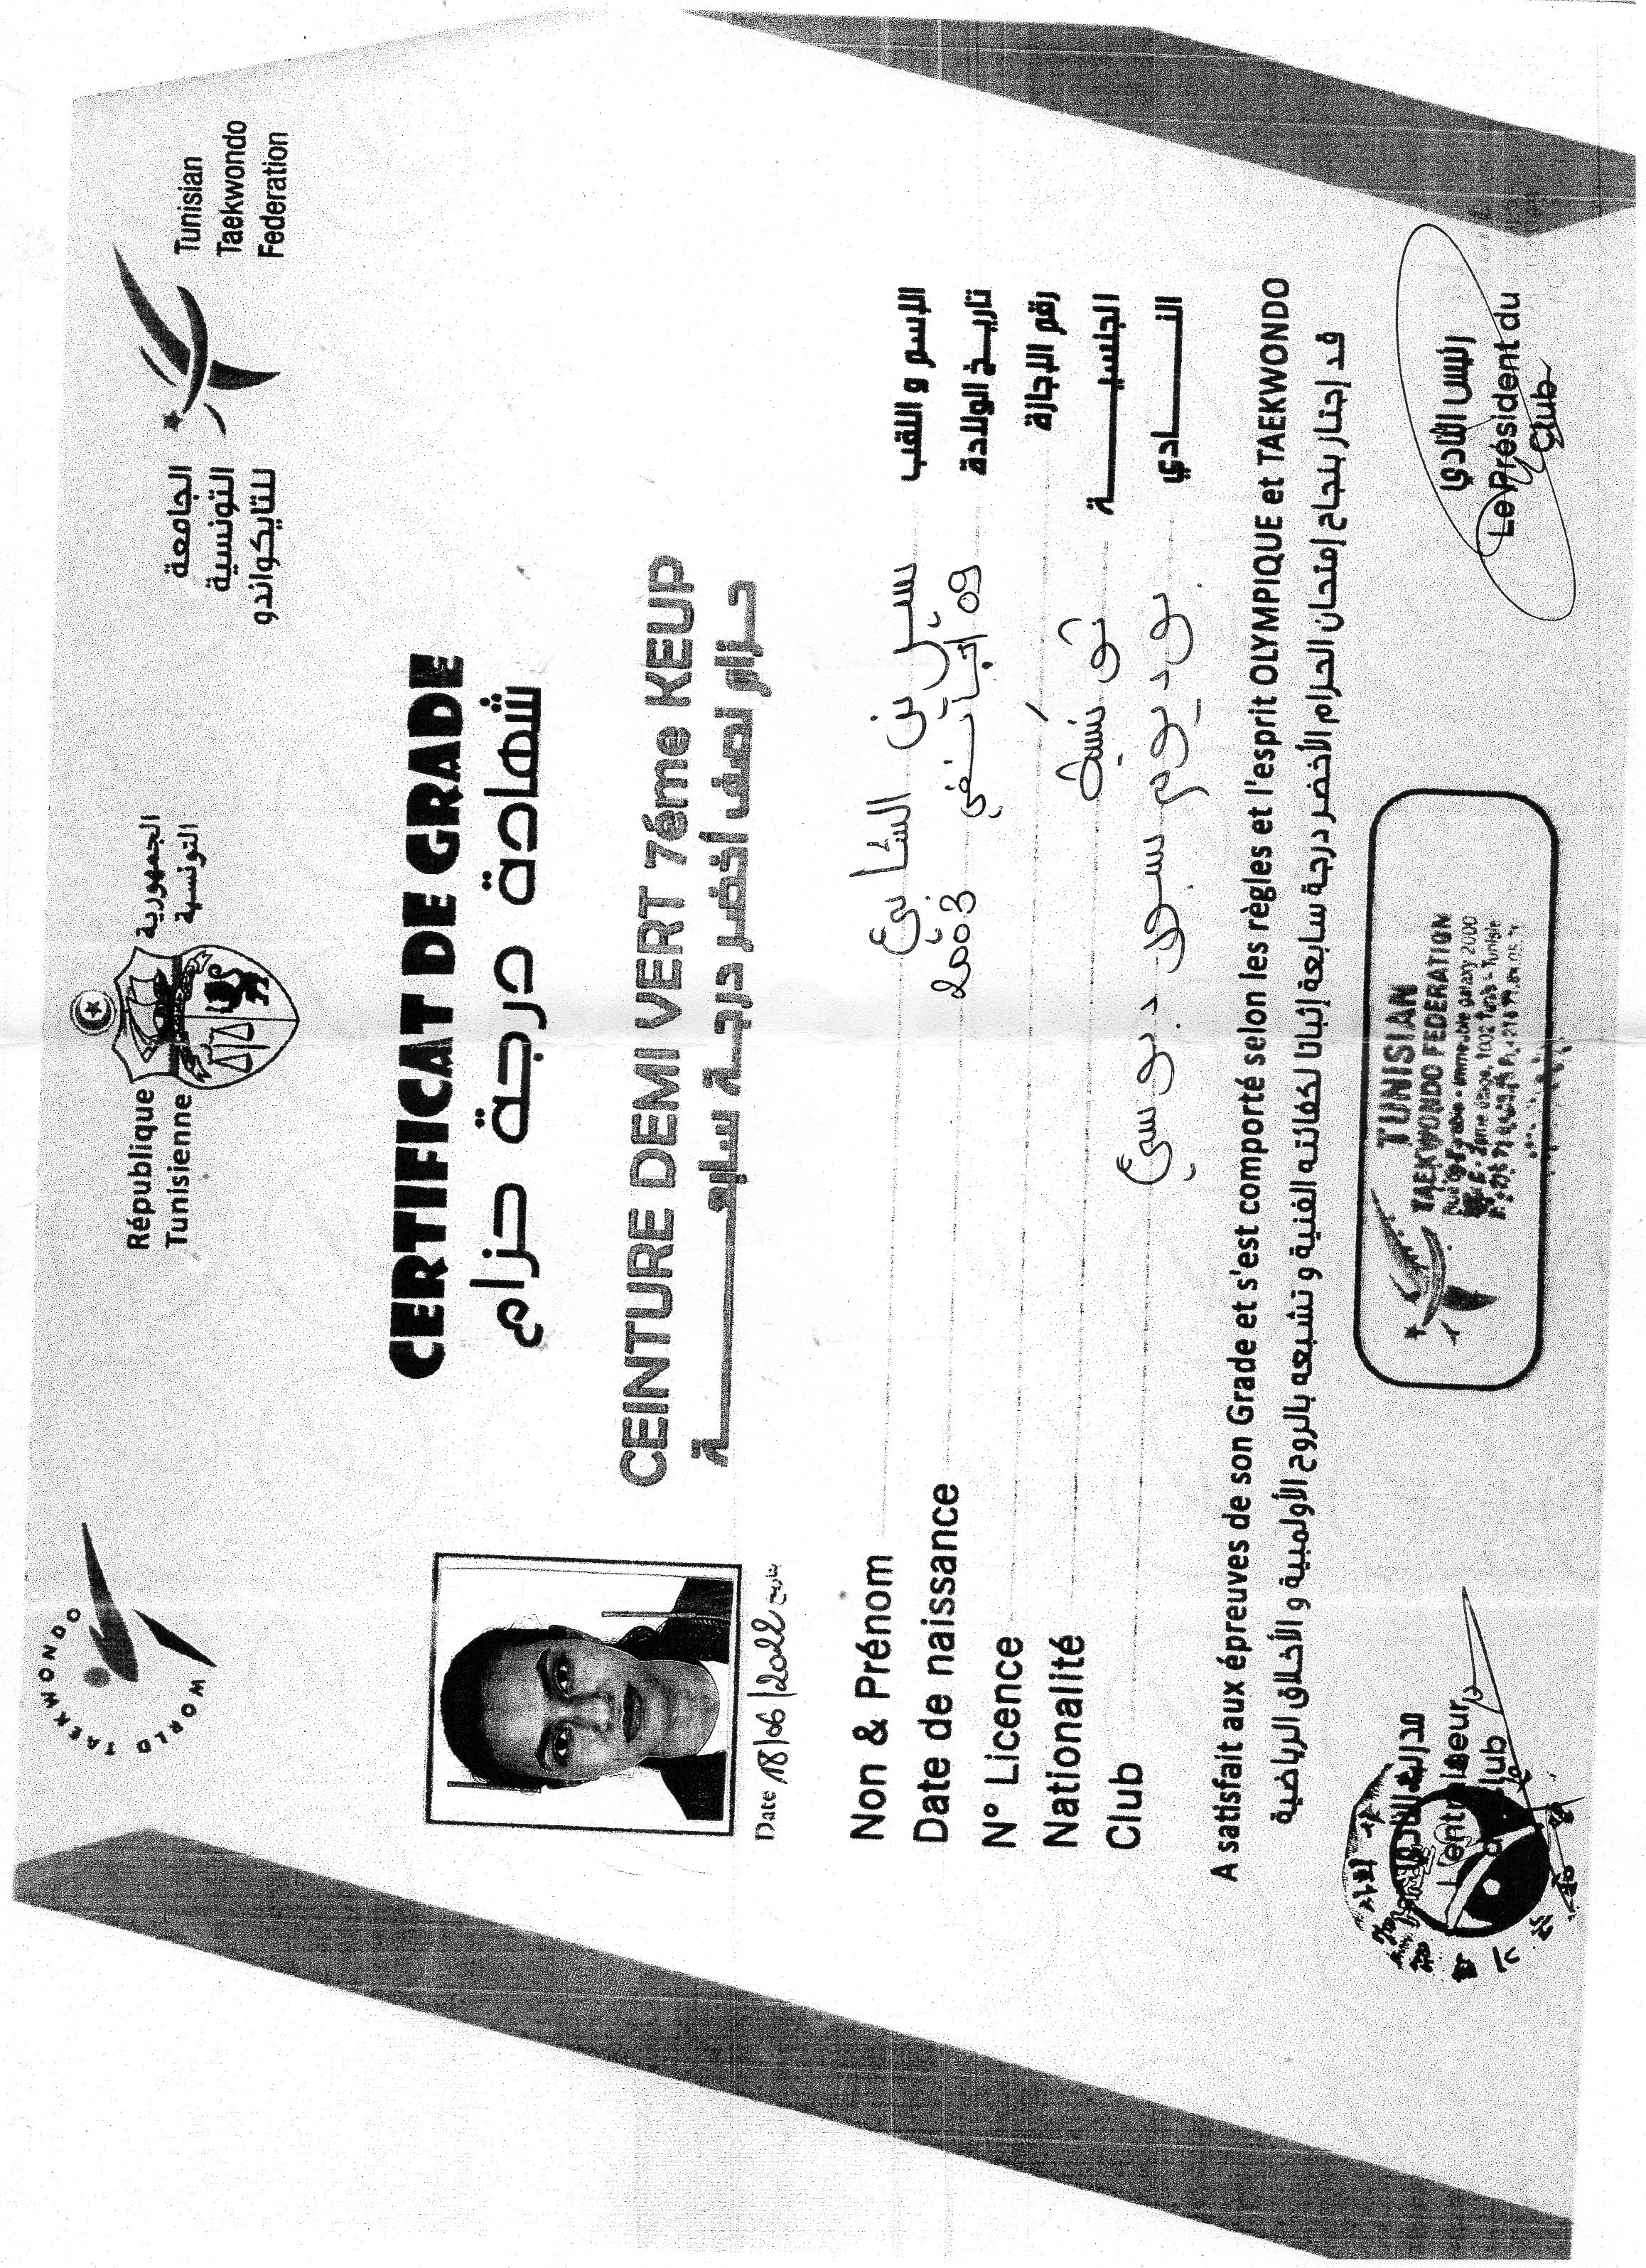 WORLD TAEKWONDO
République
Tunisienne
الجمهورية
التونسية
الجامعة
التونسية
للتايكواندو
Tunisian
Taekwondo
Federation
CERTIFICAT DE GRADE
شهادة درجة حزام
CEINTURE DEMI VERT 7éme KEUP
حزام نصف أخضر درجة سابعة
Date 18/06/2022 تاريخ
Non & Prénom بن الشابي الإسم و اللقب
Date de naissance 09 2003 تاريخ الولادة
N° Licence / رقم الإجازة
Nationalité تونسية الجنسية
Club النادي
A satisfait aux épreuves de son Grade et s'est comporté selon les règles et l'esprit OLYMPIQUE et TAEKWONDO
قد إجتاز بنجاح إمتحان الحزام الأخضر درجة سابعة إثباتا لكفائته الفنية و تشبعه بالروح الأولمبية و الأخلاق الرياضية
مدرب النادي
L'entraineur
du club
TUNISIAN
TAEKWONDO FEDERATION
immeuble galaxy 2000
1002 Tunis - Tunisie
رئيس النادي
Le Président du
Club